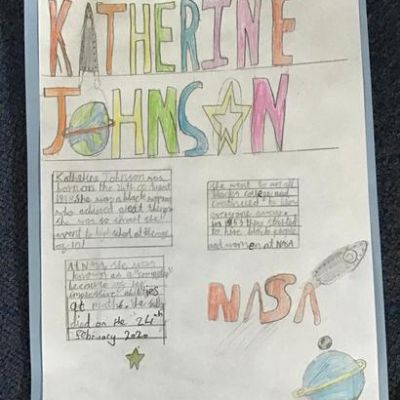 KATHERINE
JOHNSON
Katherine Johnson was
born on the 26th of August
1918. She was a black woman
who achieved great things
She was so smart she
went to high school at the age
of 10!
She went to an all
black college and
continued to
everyone
in 1953 they started
to hire black people
and women at NASA
At NASA she was
known as a "computer"
because of her
impressive
at maths. She sadly
died on the 24th
February 2020
NASA